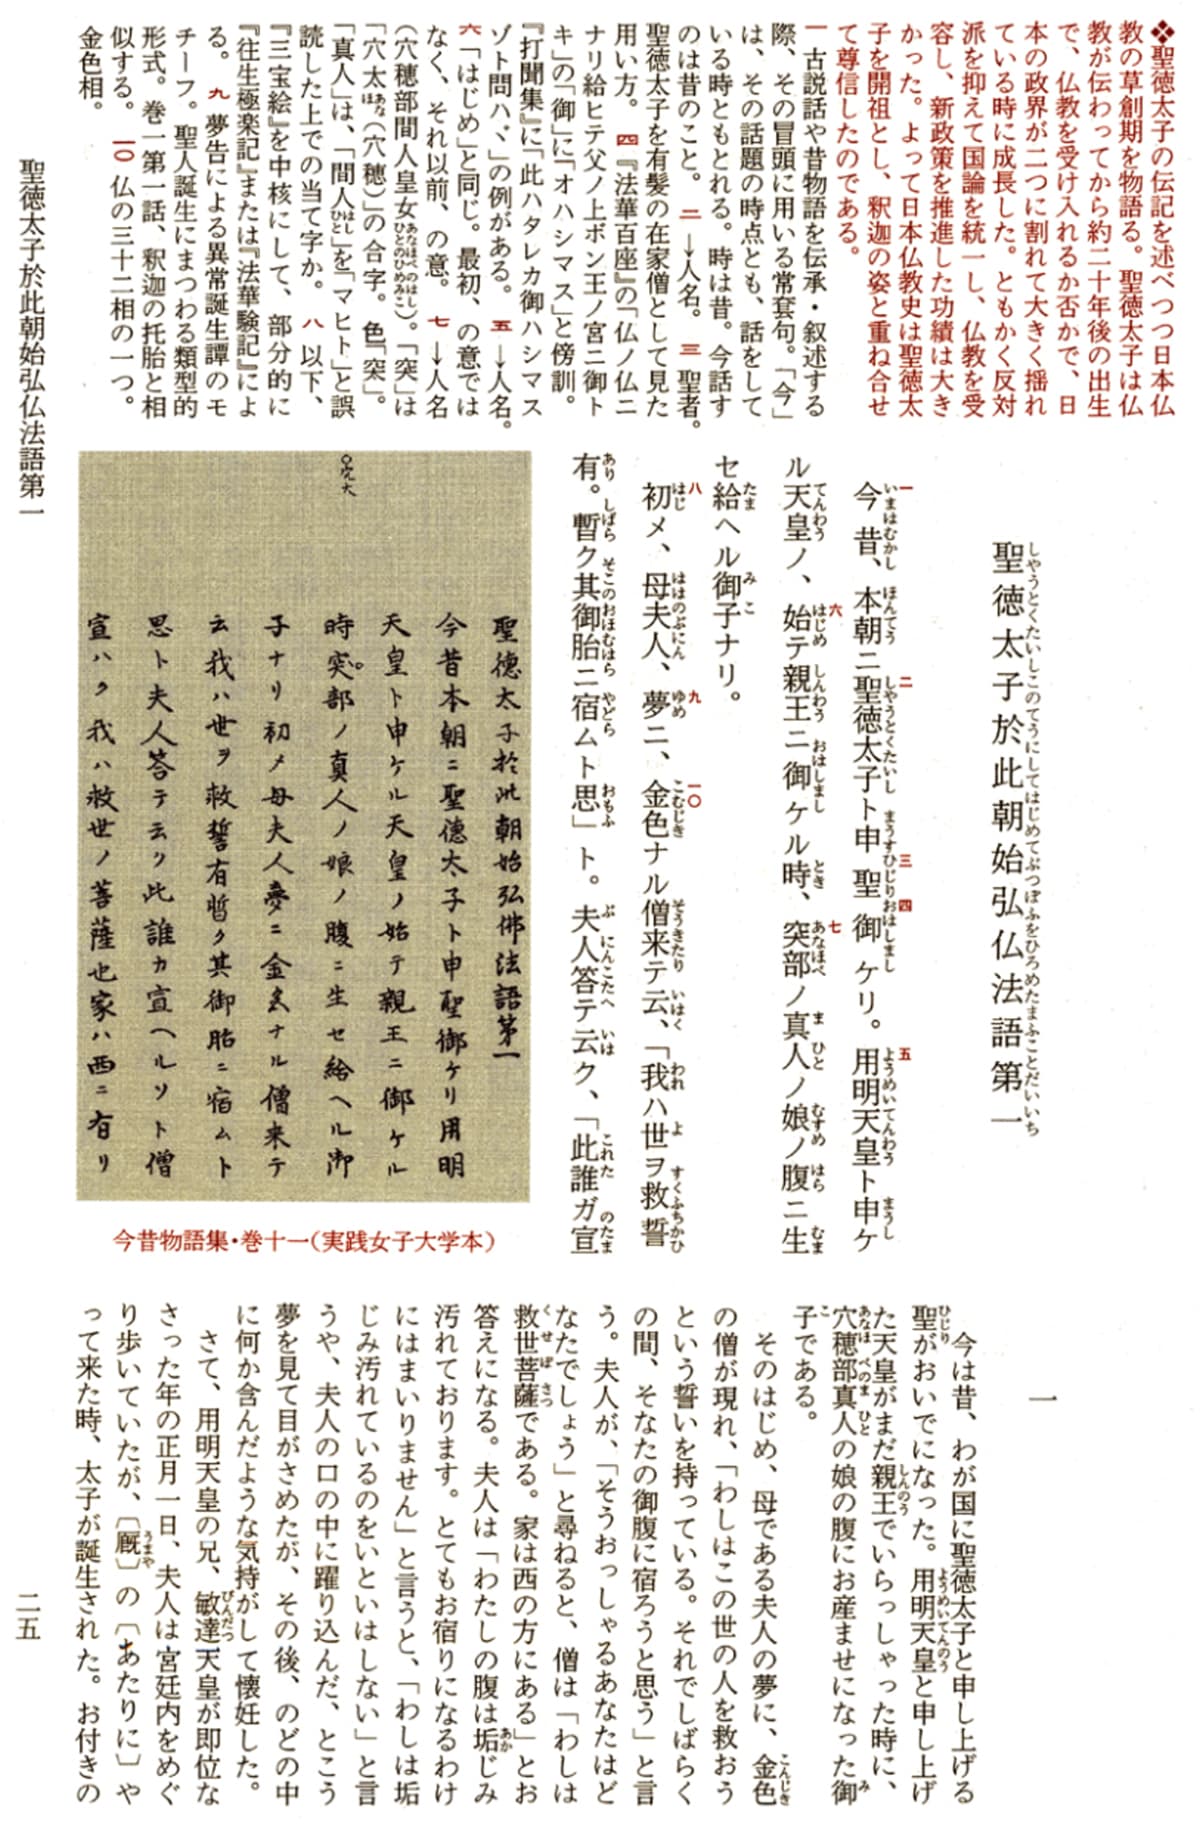 ❖聖徳太子の伝記を述べつつ日本仏
教の草創期を物語る。聖徳太子は仏
教が伝わってから約二十年後の出生
で、仏教を受け入れるか否かで、日
本の政界が二つに割れて大きく揺れ
ている時に成長した。ともかく反対
派を抑えて国論を統一し、仏教を受
容し、新政策を推進した功績は大き
かった。よって日本仏教史は聖徳太
子を開祖とし、釈迦の姿と重ね合せ
て尊信したのである。
一 古説話や昔物語を伝承・叙述する
際、その冒頭に用いる常套句。「今」
は、その話題の時点とも、話をして
いる時ともとれる。時は昔。今話す
のは昔のこと。 二 →人名。 三 聖者。
聖徳太子を有髪の在家僧として見た
用い方。 四 『法華百座』の「仏ノ仏ニ
ナリ給ヒテ父ノ上ボン王ノ宮ニ御ト
キ」の「御」に「オハシマス」と傍訓。
『打聞集』に「此ハタレカ御ハシマス
ゾト問ハヾ」の例がある。 五 →人名。
六 「はじめ」と同じ。最初、の意では
なく、それ以前、の意。 七 →人名
(穴穂部間人皇女あなほべのはしひとのひめみこ)。「突」は
「穴太あな(穴穂)」の合字。色「突」。
「真人」は、「間人はしひと」を「マヒト」と誤
読した上での当て字か。 八 以下、
『三宝絵』を中核にして、部分的に
『往生極楽記』または『法華験記』によ
る。 九 夢告による異常誕生譚のモ
チーフ。聖人誕生にまつわる類型的
形式。巻一第一話、釈迦の托胎と相
似する。 一〇 仏の三十二相の一つ。
金色相。
聖徳太子於此朝始弘仏法語第一
しやうとくたいしこのてうにしてはじめてぶつぽふをひろめたまふことだいいち
聖徳太子於此朝始弘仏法語第一
今昔、本朝ニ聖徳太子ト申聖御ケリ。用明天皇ト申ケ
ル天皇ノ、始テ親王ニ御ケル時、突部ノ真人ノ娘ノ腹ニ生
セ給ヘル御子ナリ。
初メ、母夫人、夢ニ、金色ナル僧来テ云、「我ハ世ヲ救誓
有。暫ク其御胎ニ宿ムト思」ト。夫人答テ云ク、「此誰ガ宣
○穴太
聖徳太子於此朝始弘佛法語第一
今昔本朝ニ聖徳太子ト申聖御ケリ用明
天皇ト申ケル天皇ノ始テ親王ニ御ケル
時突部ノ真人ノ娘ノ腹ニ生セ給ヘル御
子ナリ初メ母夫人夢ニ金色ナル僧来テ
云我ハ世ヲ救誓有暫ク其御胎ニ宿ムト
思ト夫人答テ云ク此誰カ宣ヘルソト僧
宣ハク我ハ救世ノ菩薩也家ハ西ニ有リ
今昔物語集・巻十一(実践女子大学本)
一
今は昔、わが国に聖徳太子と申し上げる
聖がおいでになった。用明天皇と申し上げ
た天皇がまだ親王でいらっしゃった時に、
穴穂部真人の娘の腹にお産ませになった御
子である。
そのはじめ、母である夫人の夢に、金色
の僧が現れ、「わしはこの世の人を救おう
という誓いを持っている。それでしばらく
の間、そなたの御腹に宿ろうと思う」と言
う。夫人が、「そうおっしゃるあなたはど
なたでしょう」と尋ねると、僧は「わしは
救世菩薩である。家は西の方にある」とお
答えになる。夫人は「わたしの腹は垢じみ
汚れております。とてもお宿りになるわけ
にはまいりません」と言うと、「わしは垢
じみ汚れているのをいといはしない」と言
うや、夫人の口の中に躍り込んだ、とこう
夢を見て目がさめたが、その後、のどの中
に何か含んだような気持がして懐妊した。
さて、用明天皇の兄、敏達天皇が即位な
さった年の正月一日、夫人は宮廷内をめぐ
り歩いていたが、〔厩〕の〔あたりに〕や
って来た時、太子が誕生された。お付きの
二五